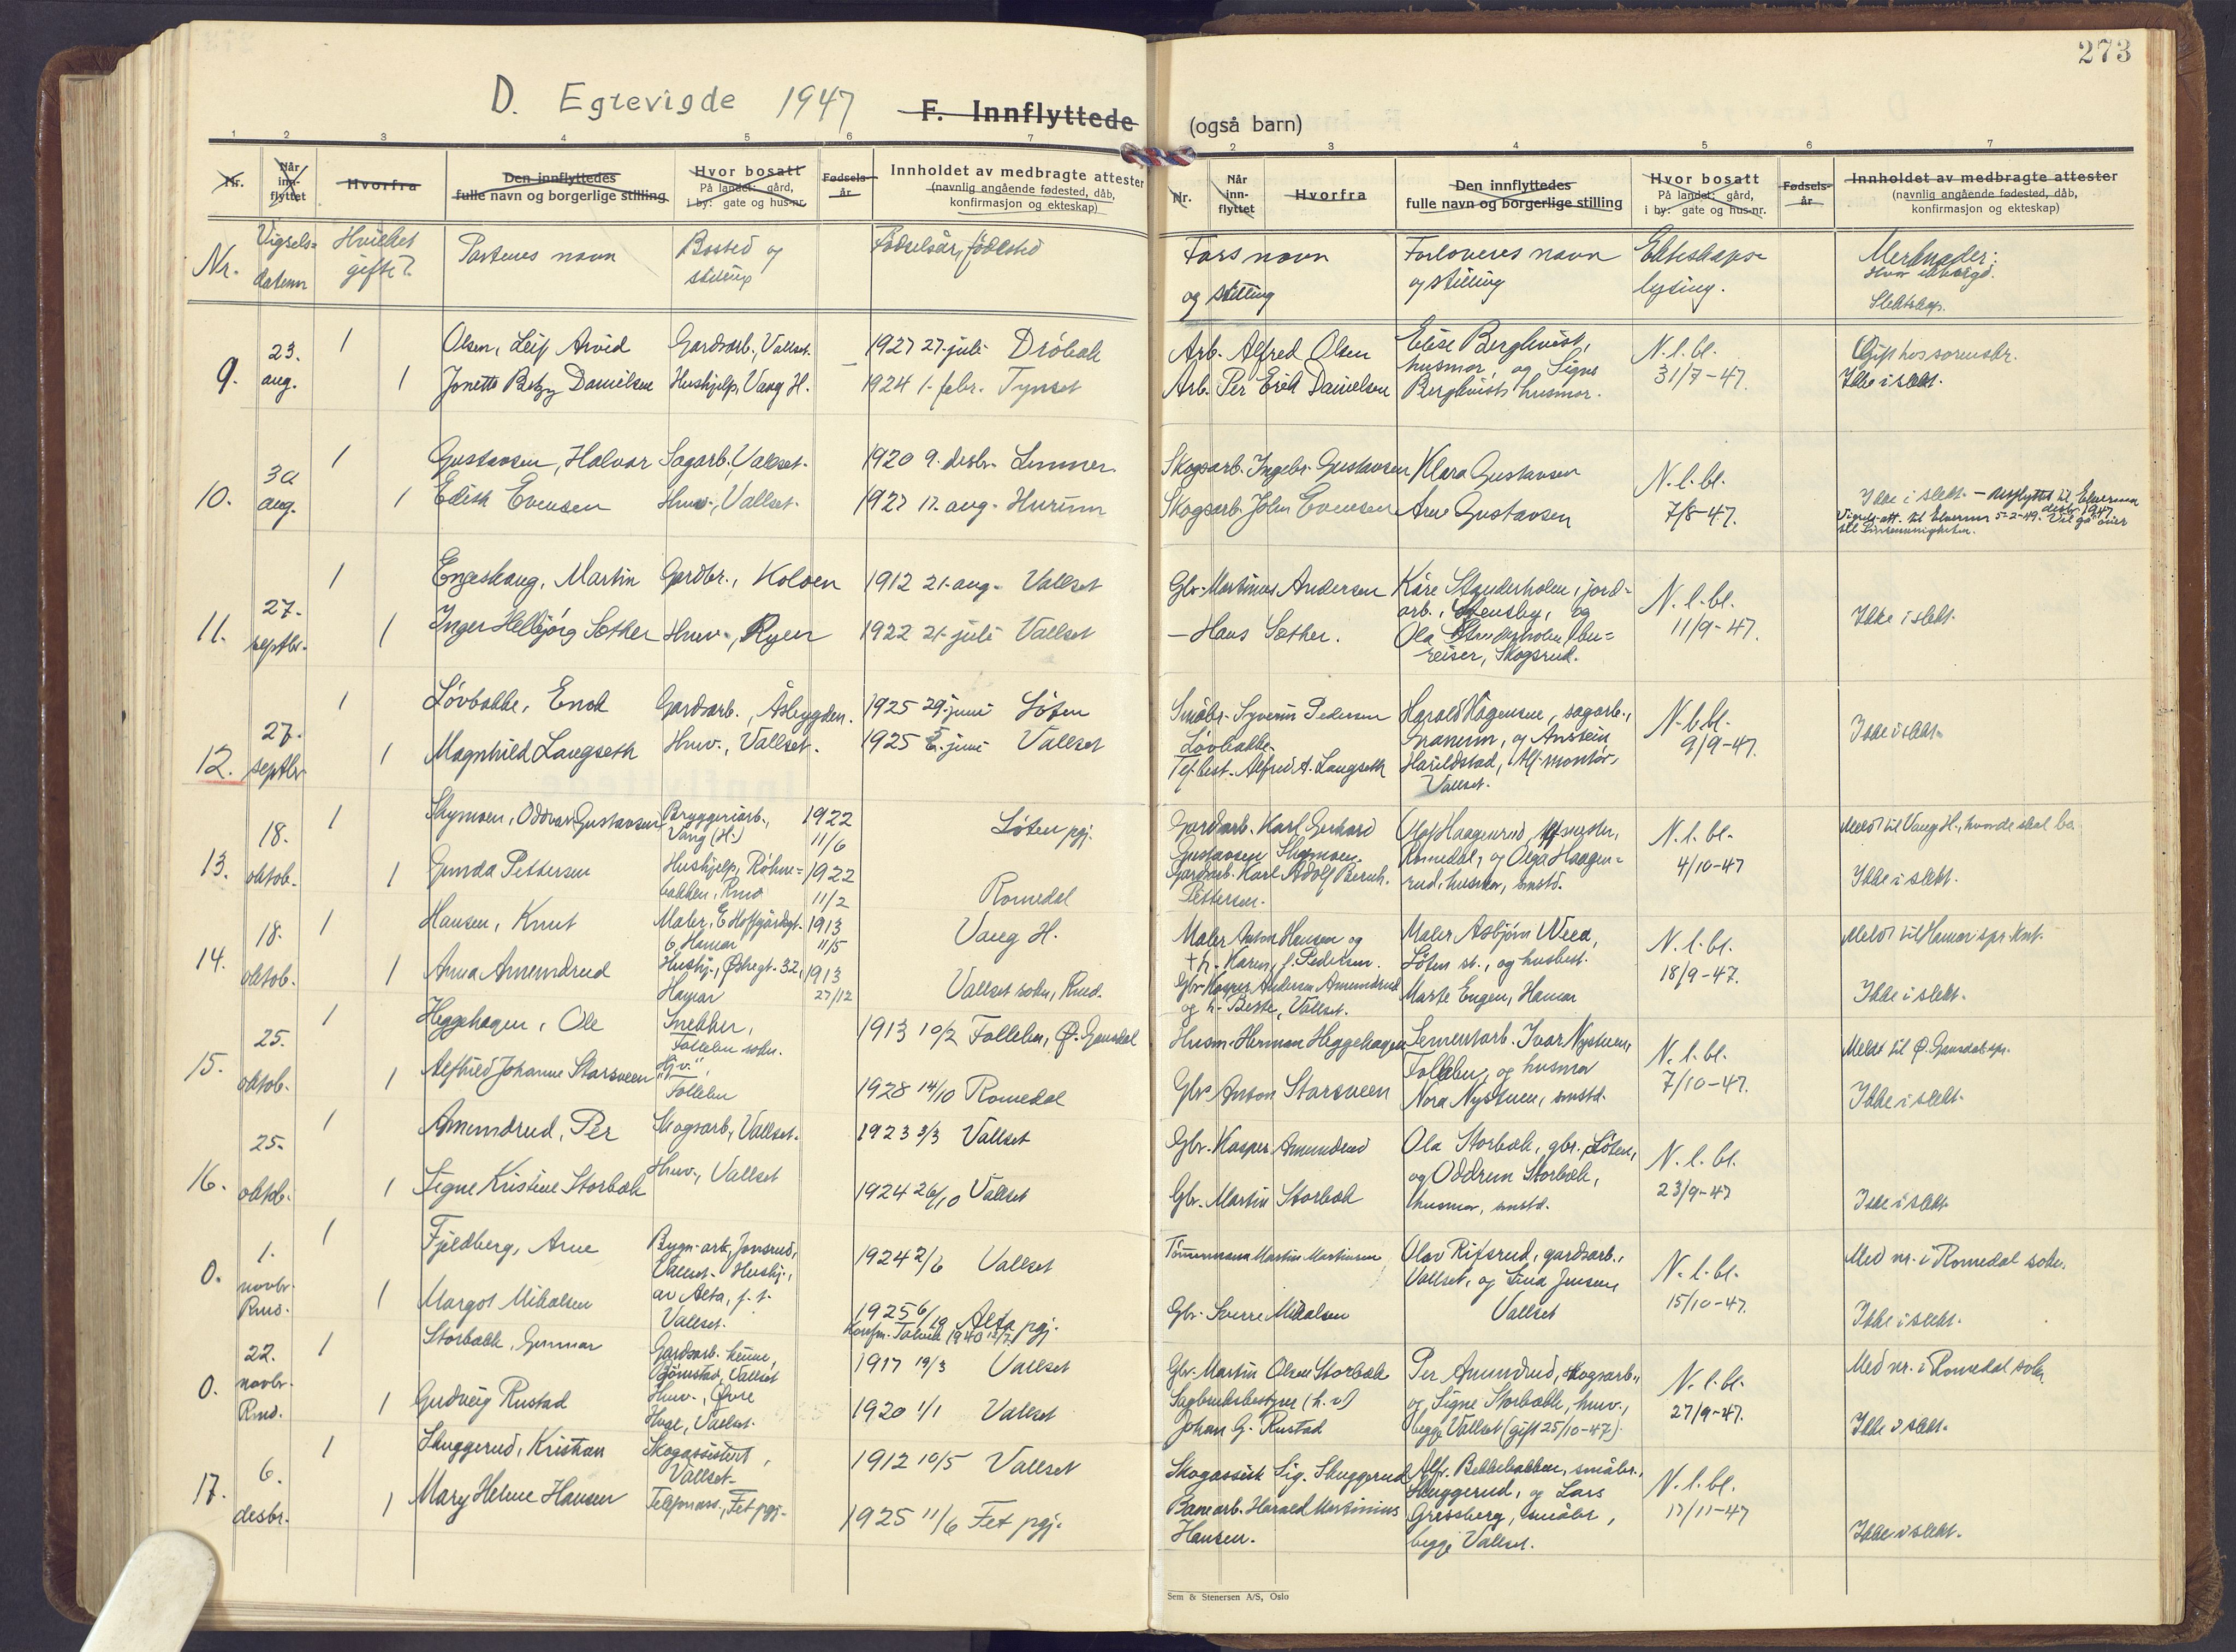 273
D. Egtevigde 1947
F. Innflyttede
(også barn)
1 2 3 4 5 6 7
2 3 4 5 6 7
Nr.
Når inn-flyttet
Hvorfra
Den innflyttedes fulle navn og borgerlige stilling
Hvor bosatt På landet: gård, i by: gate og hus-nr.
Fødsels-år
Innholdet av medbragte attester (navnlig angående fødested, dåb, konfirmasjon og ekteskap)
Nr.
Når inn-flyttet
Hvorfra
Den innflyttedes fulle navn og borgerlige stilling
Hvor bosatt På landet: gård, i by: gate og hus-nr.
Fødsels-år
Innholdet av medbragte attester (navnlig angående fødested, dåb, konfirmasjon og ekteskap)
Nr.
Vigsels-datum
Hvilket gifte?
Partenes navn
Bosted og stilling
Fødselsår, fødested
Fars navn og stilling
Forloveres navn og stilling
Ekteskaps-lysing.
Merknader:
Slektskap.
9. 23. aug.
1 Olsen, Leif Arvid Gardsarb., Vallset. 1927 27. juli Drøbak
1 Jonette Betzy Danielsen Hushjelp, Vang H. 1924 1. febr. Tynset
Arb. Alfred Olsen
Arb. Per Erik Danielsen
Elise Bergkvist,
husmor, og Signe
Bergkvist, husmor.
N.l.bl.
31/7-47.
Gift hos sorenskr.
Ikke i slekt.
10. 30 aug.
1 Gustavsen, Halvor Sagarb. Vallset. 1920 9. desbr. Lunner.
1 Edith Evensen Huv., Vallset. 1927 17. aug. Hurum
Skogsarb. Ingebr. Gustavsen
Skogsarb. John Evensen
Klara Gustavsen
Arne Gustavsen
N.l.bl.
7/8-47.
Ikke i slekt. - utflyttet til Elverum desbr. 1947
Vigsels-att. til Elverum 5-2-49. Vil gå over
11. 27. septbr.
1 Engeskaug, Martin Gardbr., Kolven 1912 21. aug. Vallset
1 Inger Helbjørg Sæther Huv., Ryen 1922 21. juli Vallset
Gbr. Martinus Andersen
— Hans Sæther.
Kåre Standerholen, jord-
arb., Stensby, og
Ola Standerholen, bu-
reiser, Skogsrud.
N.l.bl.
11/9-47.
Ikke i slekt.
12. 27. septbr.
1 Løvbakke, Enok Gardsarb., Åsbygden. 1925 29. juni Løten
1 Magnhild Langseth Huv., Vallset. 1925 5. juni Vallset
Småbr. Syverin Pedersen
Løvbakke.
Tef.best. Alfred A. Langseth
Harald Hågensen, sagarb.,
Granum, og Anstein
Harildstad, tlf-montør,
Vallset.
N.l.bl.
9/9-47.
Ikke i slekt.
13. 18. oktob.
1 Skymoen, Oddvar Gustavsen Bryggeriarb., Vang (H.) 1922 11/6 Løten pgj.
1 Gunda Pettersen Hushjelp, Røhne-bakken, Rmd 1922 11/2 Romedal
Gardarb. Karl Gerhard
Gustavsen Skymoen.
Gardarb. Karl Adolf Bernh.
Pettersen.
Olaf Haagenrud, tlfmester,
Romedal, og Olga Haagen-
rud, husmor, smstd.
N.l.bl.
4/10-47
Meldt til Vang H., hvor de skal bo.
Ikke i slekt.
14. 18. oktob.
1 Hansen, Knut Maler, E. Hoffgårdsgt. 6, Hamar 1913 11/5 Vang H.
1 Anna Amundrud Hushj., Østregt. 32, Hamar 1913 27/12 Vallset sokn, Rmd.
Maler Anton Hansen og
+ h. Karen, f. Pedersen.
Gbr. Kasper Andersen Amundrud
og h. Berte, Vallset.
Maler Asbjørn Weea,
Løten st., og husbest.
Marte Engen, Hamar
N.l.bl.
18/9-47.
Meldt til Hamar spr. knt.
Ikke i slekt.
15. 25. oktob.
1 Heggehagen, Ole Snekker, Follebu sokn. 1913 10/2 Follebu, Ø. Gausdal
1 Alfhild Johanne Starsveen Hjv., Follebu 1928 14/10 Romedal
Husm. Herman Heggehagen
Gbr. Anton Starsveen
Sementarb. Ivar Nystuen,
Follebu, og husmor
Nora Nystuen, smstd.
N.l.bl.
7/10-47.
Meldt til Ø. Gausdal spr.
Ikke i slekt.
16. 25. oktob.
1 Amundrud, Per Skogsarb., Vallset. 1923 3/3 Vallset
1 Signe Kristine Storbæk Huv., Vallset 1924 26/10 Vallset
Gbr. Kasper Amundrud
Gbr. Martin Storbæk
Ola Storbæk, gbr. Løten,
og Oddrun Storbæk,
husmor, smstd.
N.l.bl.
23/9-47
Ikke i slekt.
0. 1. novbr. Rmd.
1 Fjeldberg, Arne Bygn-arb, Jønsrud, Vallset. 1924 2/6 Vallset
1 Margot Mikalsen Hushj., av Alta, p.t. Vallset. 1925 6/10 Alta pgj.
Konfm. Talvik 1940
Tømmermann Martin Martinsen
Gbr. Sverre Mikalsen
Olav Rifsrud, gardsarb.,
Vallset, og Lina Jensen,
Vallset
N.l.bl.
15/10-47.
Med nr. i Romedal sokn.
Ikke i slekt.
0. 22. novbr. Rmd.
1 Storbækk, Gunnar Gardsarb. heime, Bjørnstad, Vallset 1917 19/3 Vallset
1 Gudveig Rustad Huv., Øvre Huse, Vallset. 1920 1/1 Vallset
Gbr. Martin Olsen Storbæk
Sagbruksbestyrer (h.v)
Johan G. Rustad
Per Amundrud, skogsarb.,
og Signe Storbækk, huv.,
begge Vallset (gift 25/10-47).
N.l.bl.
27/9-47.
Med nr. i Romedal sokn
Ikke i slekt.
17. 6. desbr.
1 Skuggerud, Kristian Skogassistent, Vallset. 1912 10/5 Vallset
1 Mary Helene Hansen Telefonass., Fet pgj. 1925 11/6 Fet pgj.
Skogassist. Sig. Skuggerud
Banearb. Harald Martinius
Hansen.
Alfr. Bekkebakken, småbr.,
Skuggerud, og Lars
Gressberg, småbr.,
begge Vallset.
N.l.bl.
17/11-47
Ikke i slekt.
Sem & Stenersen A/S, Oslo